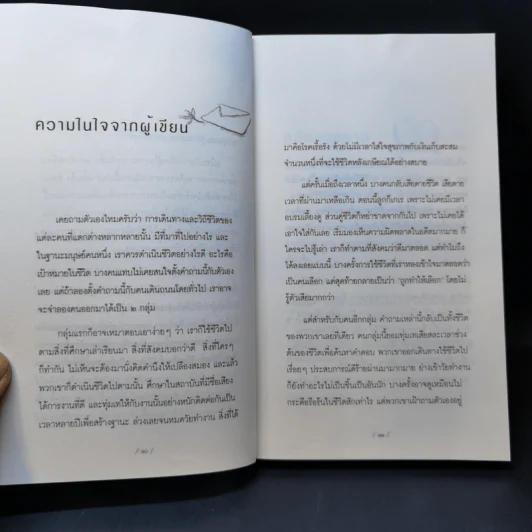 ความในใจจากผู้เขียน
เคยถามตัวเองไหมครับว่า การเดินทางและวิถีชีวิตของ
แต่ละคนที่แตกต่างหลากหลายนั้น มีที่มาที่ไปอย่างไร และ
ในฐานะมนุษย์คนหนึ่ง เราควรดำเนินชีวิตอย่างไรดี อะไรคือ
เป้าหมายในชีวิต บางคนแทบไม่เคยสนใจตั้งคำถามนี้กับตัวเอง
เลย แต่ถ้าลองตั้งคำถามนี้กับคนเดินถนนโดยทั่วไป เราอาจ
จะจำลองคนออกมาได้เป็น ๒ กลุ่ม
กลุ่มแรกก็อาจเหมาตอบเอาง่ายๆ ว่า เราก็ใช้ชีวิตไป
ตามสิ่งที่ศึกษาเล่าเรียนมา สิ่งที่สังคมบอกว่าดี สิ่งที่ใครๆ
ก็ทำกัน ไม่เห็นจะต้องมานั่งคิดคำนึงให้เปลืองสมอง และแล้ว
พวกเขาก็ดำเนินชีวิตไปตามนั้น ศึกษาในสถาบันที่มีชื่อเสียง
ได้การงานที่ดี และทุ่มเทให้กับงานนั้นอย่างหนักติดต่อกันเป็น
เวลาหลายปีเพื่อสร้างฐานะ ล่วงเลยจนหมดวัยทำงาน สิ่งที่ได้
มาคือโรคเรื้อรัง ด้วยไม่มีเวลาใส่ใจสุขภาพกับเงินเก็บสะสม
จำนวนหนึ่งที่จะใช้ชีวิตหลังเกษียณได้อย่างสบาย
แต่ครั้นเมื่อถึงเวลาหนึ่ง บางคนกลับเสียดายชีวิต เสียดาย
เวลาที่ผ่านมาเหลือเกิน ตอนนี้ลูกก็เกเร เพราะไม่เคยมีเวลา
อบรมเลี้ยงดู ส่วนคู่ชีวิตก็หย่าขาดจากกันไป เพราะไม่เคยได้
เอาใจใส่กันเลย เริ่มมองเห็นความผิดพลาดในอดีตมากมาย ก็
ใครจะไปรู้เล่า เราก็ทำตามที่สังคมว่าดีมาตลอด แต่ทำไมถึง
ได้ลงเอยแบบนี้ บางครั้งการใช้ชีวิตที่เราหลงเข้าใจมาตลอดว่า
เป็นคนเลือก แต่สุดท้ายกลายเป็นว่า "ถูกทำให้เลือก" โดยไม่
รู้ตัวเสียมากกว่า
แต่สำหรับกับคนอีกกลุ่ม คำถามเหล่านี้กลับเป็นทั้งชีวิต
ของพวกเขาเลยทีเดียว คนกลุ่มนี้ยอมทุ่มเทเสียสละเวลาช่วง
ต้นของชีวิตเพื่อค้นหาคำตอบ พวกเขาออกเดินทางใช้ชีวิตไป
เรื่อยๆ ประสบการณ์ดีร้ายผ่านมามากมาย ย่างเข้าวัยทำงาน
ก็ยังทำอะไรไม่เป็นชิ้นเป็นอันนัก บางครั้งอาจดูเหมือนไม่
กระตือรือร้นในชีวิตสักเท่าไร แต่พวกเขาเฝ้าถามตัวเองอยู่